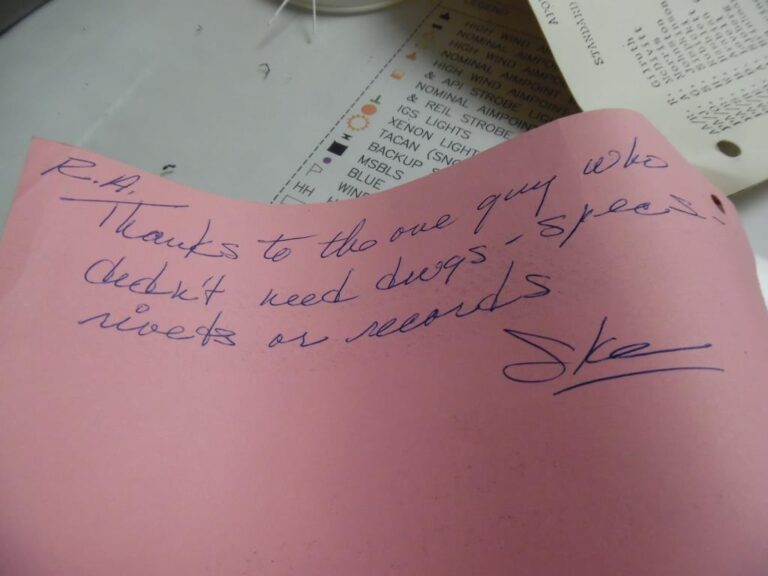 LEGEND
HIGH WIND
NOMINAL AIMPO
HIGH WIND AIMPO
NOMINAL AIMPOINT
HIGH WIND AIMPOINT
& API STROBE LIG
NOMINAL AIMPOIN
& REIL STROBE
IGS LIGHTS
XENON LIGHT
TACAN (SNG
BACKUP S
MSBLS
BLUE
WIN
P
HH
STANDARD
R. A.
Thanks to the one guy who
didn't need dwgs - specs.
rivets or records
Ske